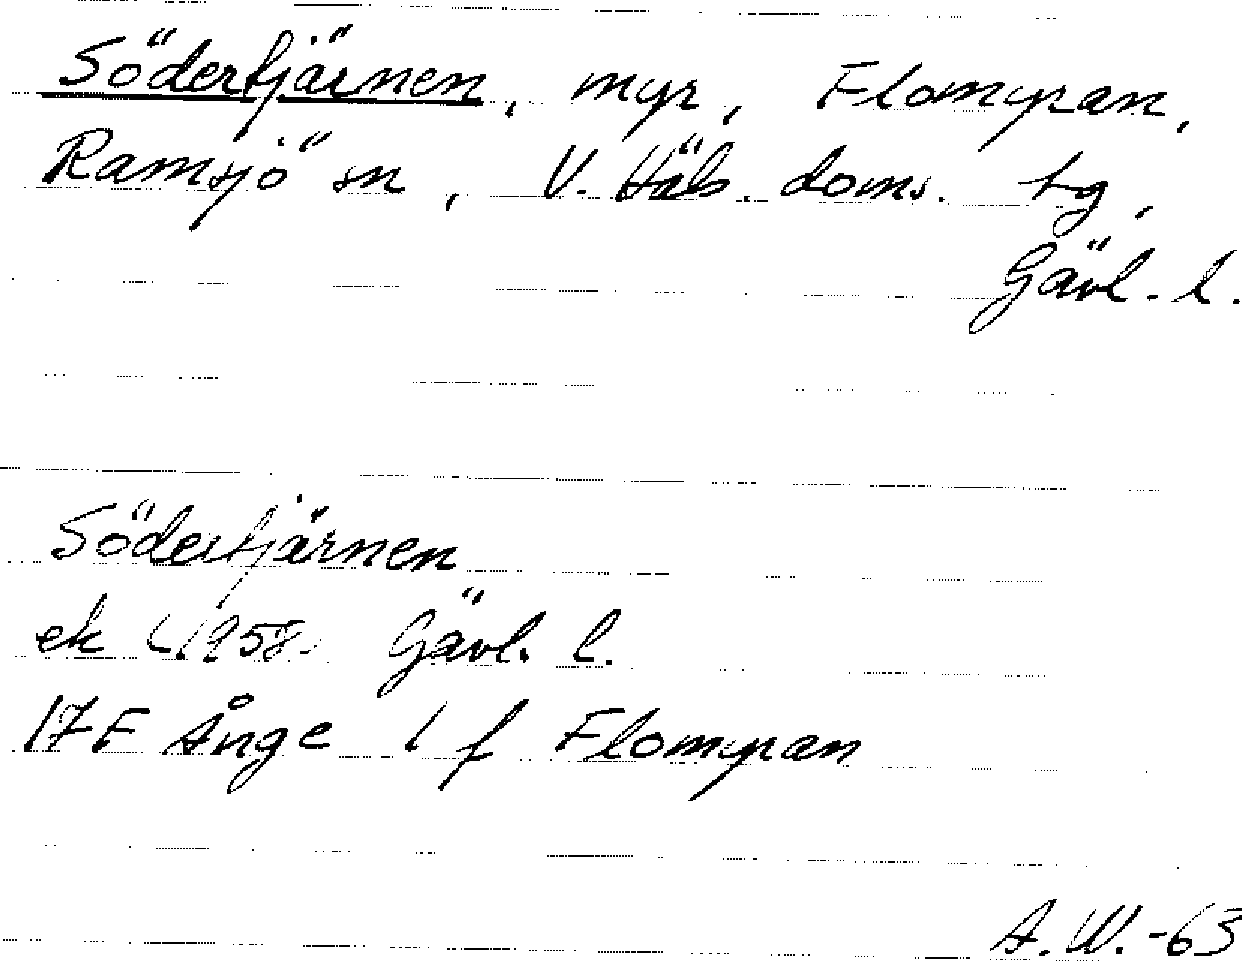 Södertjärnen, myr, Flomyran,
Ramsjö sn, V. Häls. doms. tg,
Gävl. l.
Södertjärnen
ek (1958) Gävl. l.
17F Ånge 1 f Flomyran
A.W.-63